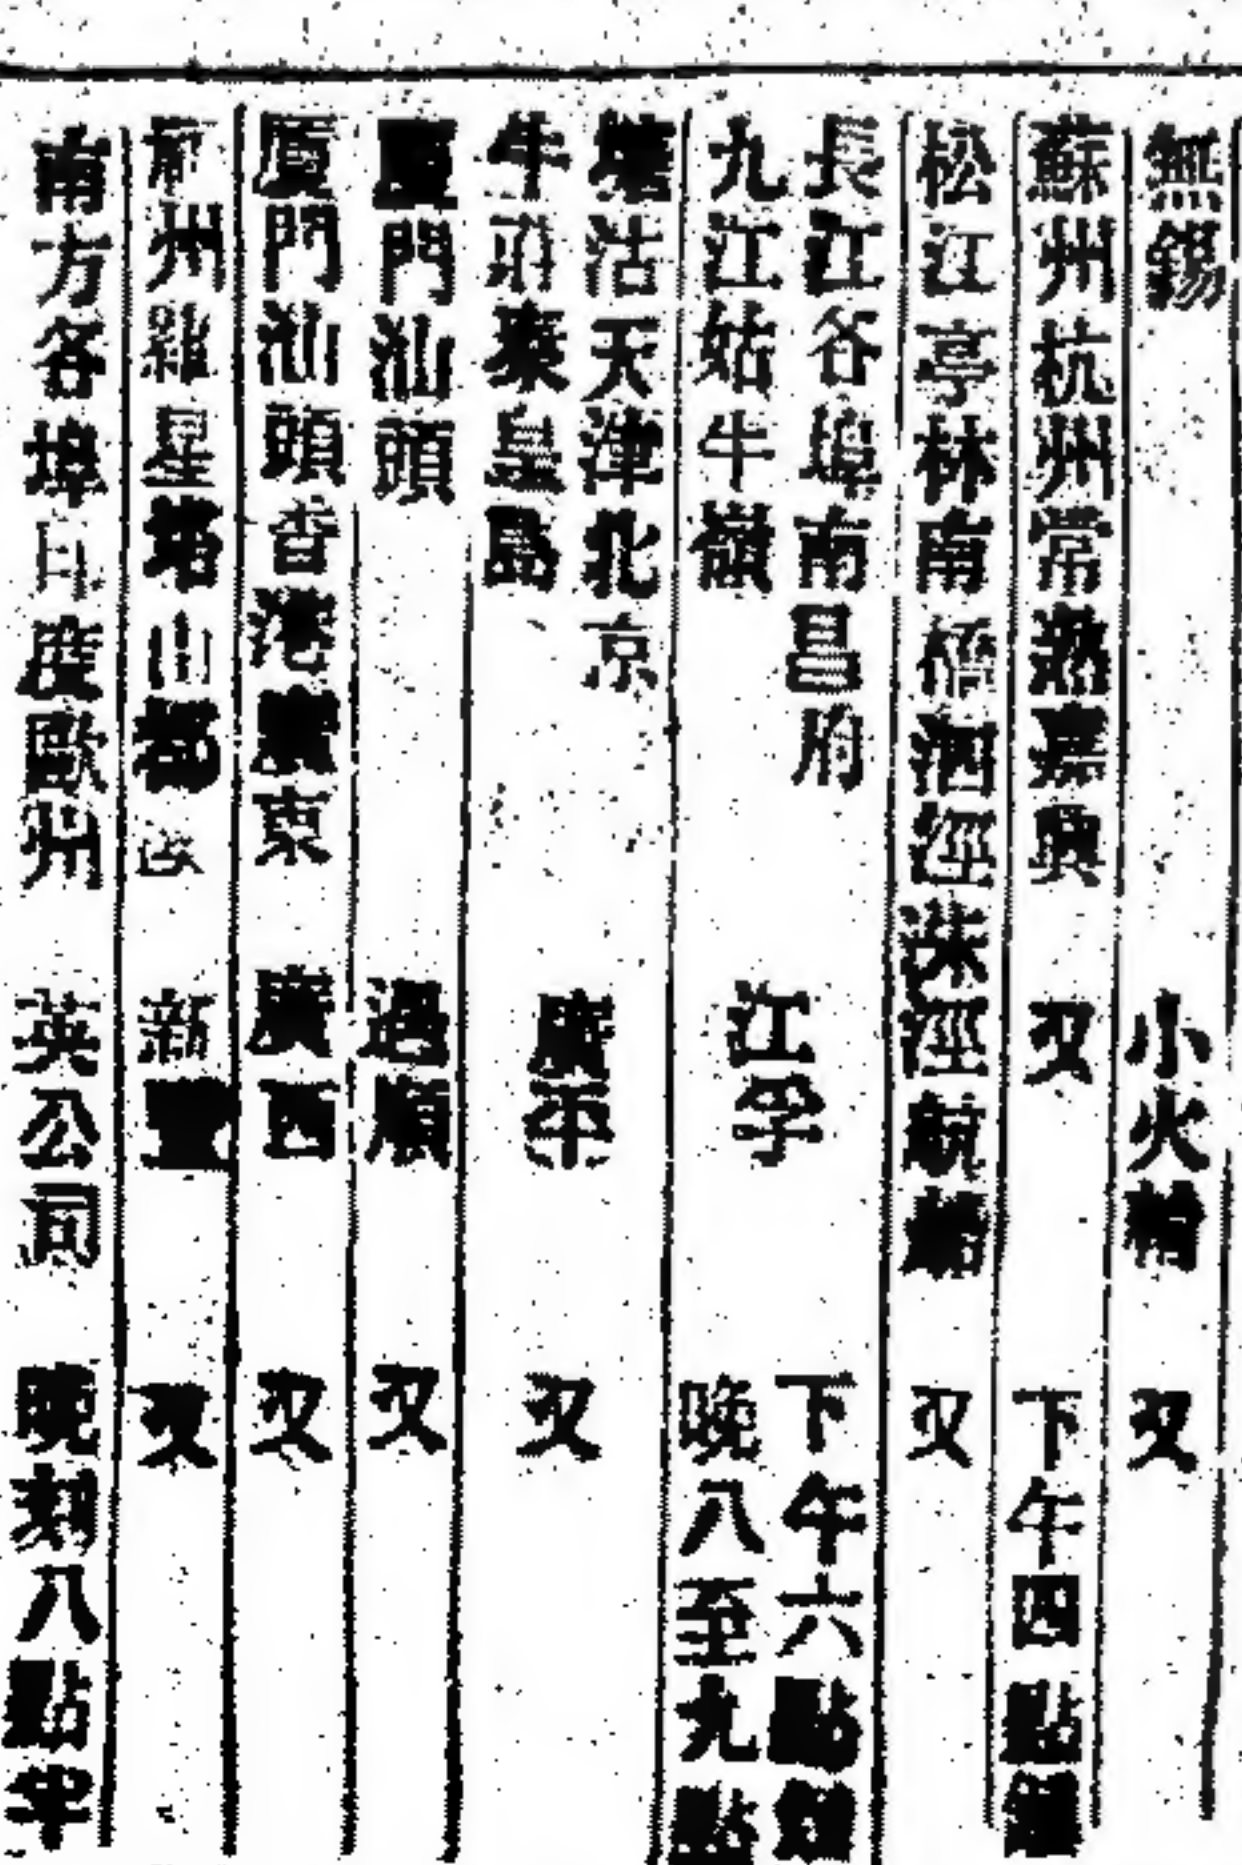 無錫 小火輪 又
蘇州杭州常熟嘉興 又 下午四點鐘
松江亭林南橋泗涇洙涇航船 又
長江各埠南昌府 江孚 下午六點鐘
九江姑牛嶺 晚八至九點
塘沽天津北京 廣平 又
牛莊秦皇島
廈門汕頭 過順 又
廈門汕頭香港廣東 廣西 又
州 星 山 新豐 又
南方各埠印度歐州 英公司 晚刻八點半